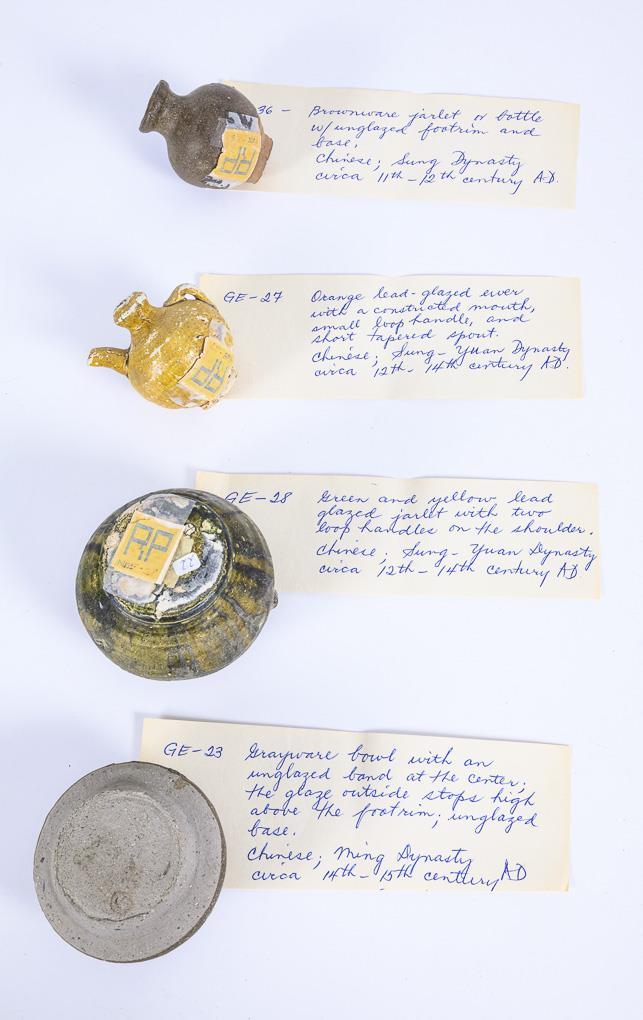 36 - Brownware jarlet or bottle
w/unglazed footrim and
base.
Chinese; Sung Dynasty
circa 11th-12th century AD.
GE-27 Orange lead-glazed ewer
with a constricted mouth,
small loop handle, and
short tapered spout.
Chinese; Sung-Yuan Dynasty
circa 12th-14th century AD.
GE-28 Green and yellow lead
glazed jarlet with two
loop handles on the shoulder.
Chinese; Sung-Yuan Dynasty
circa 12th-14th century AD.
RP
22
GE-23 Grayware bowl with an
unglazed band at the center;
the glaze outside stops high
above the footrim; unglazed
base.
Chinese; Ming Dynasty
circa 14th-15th century AD